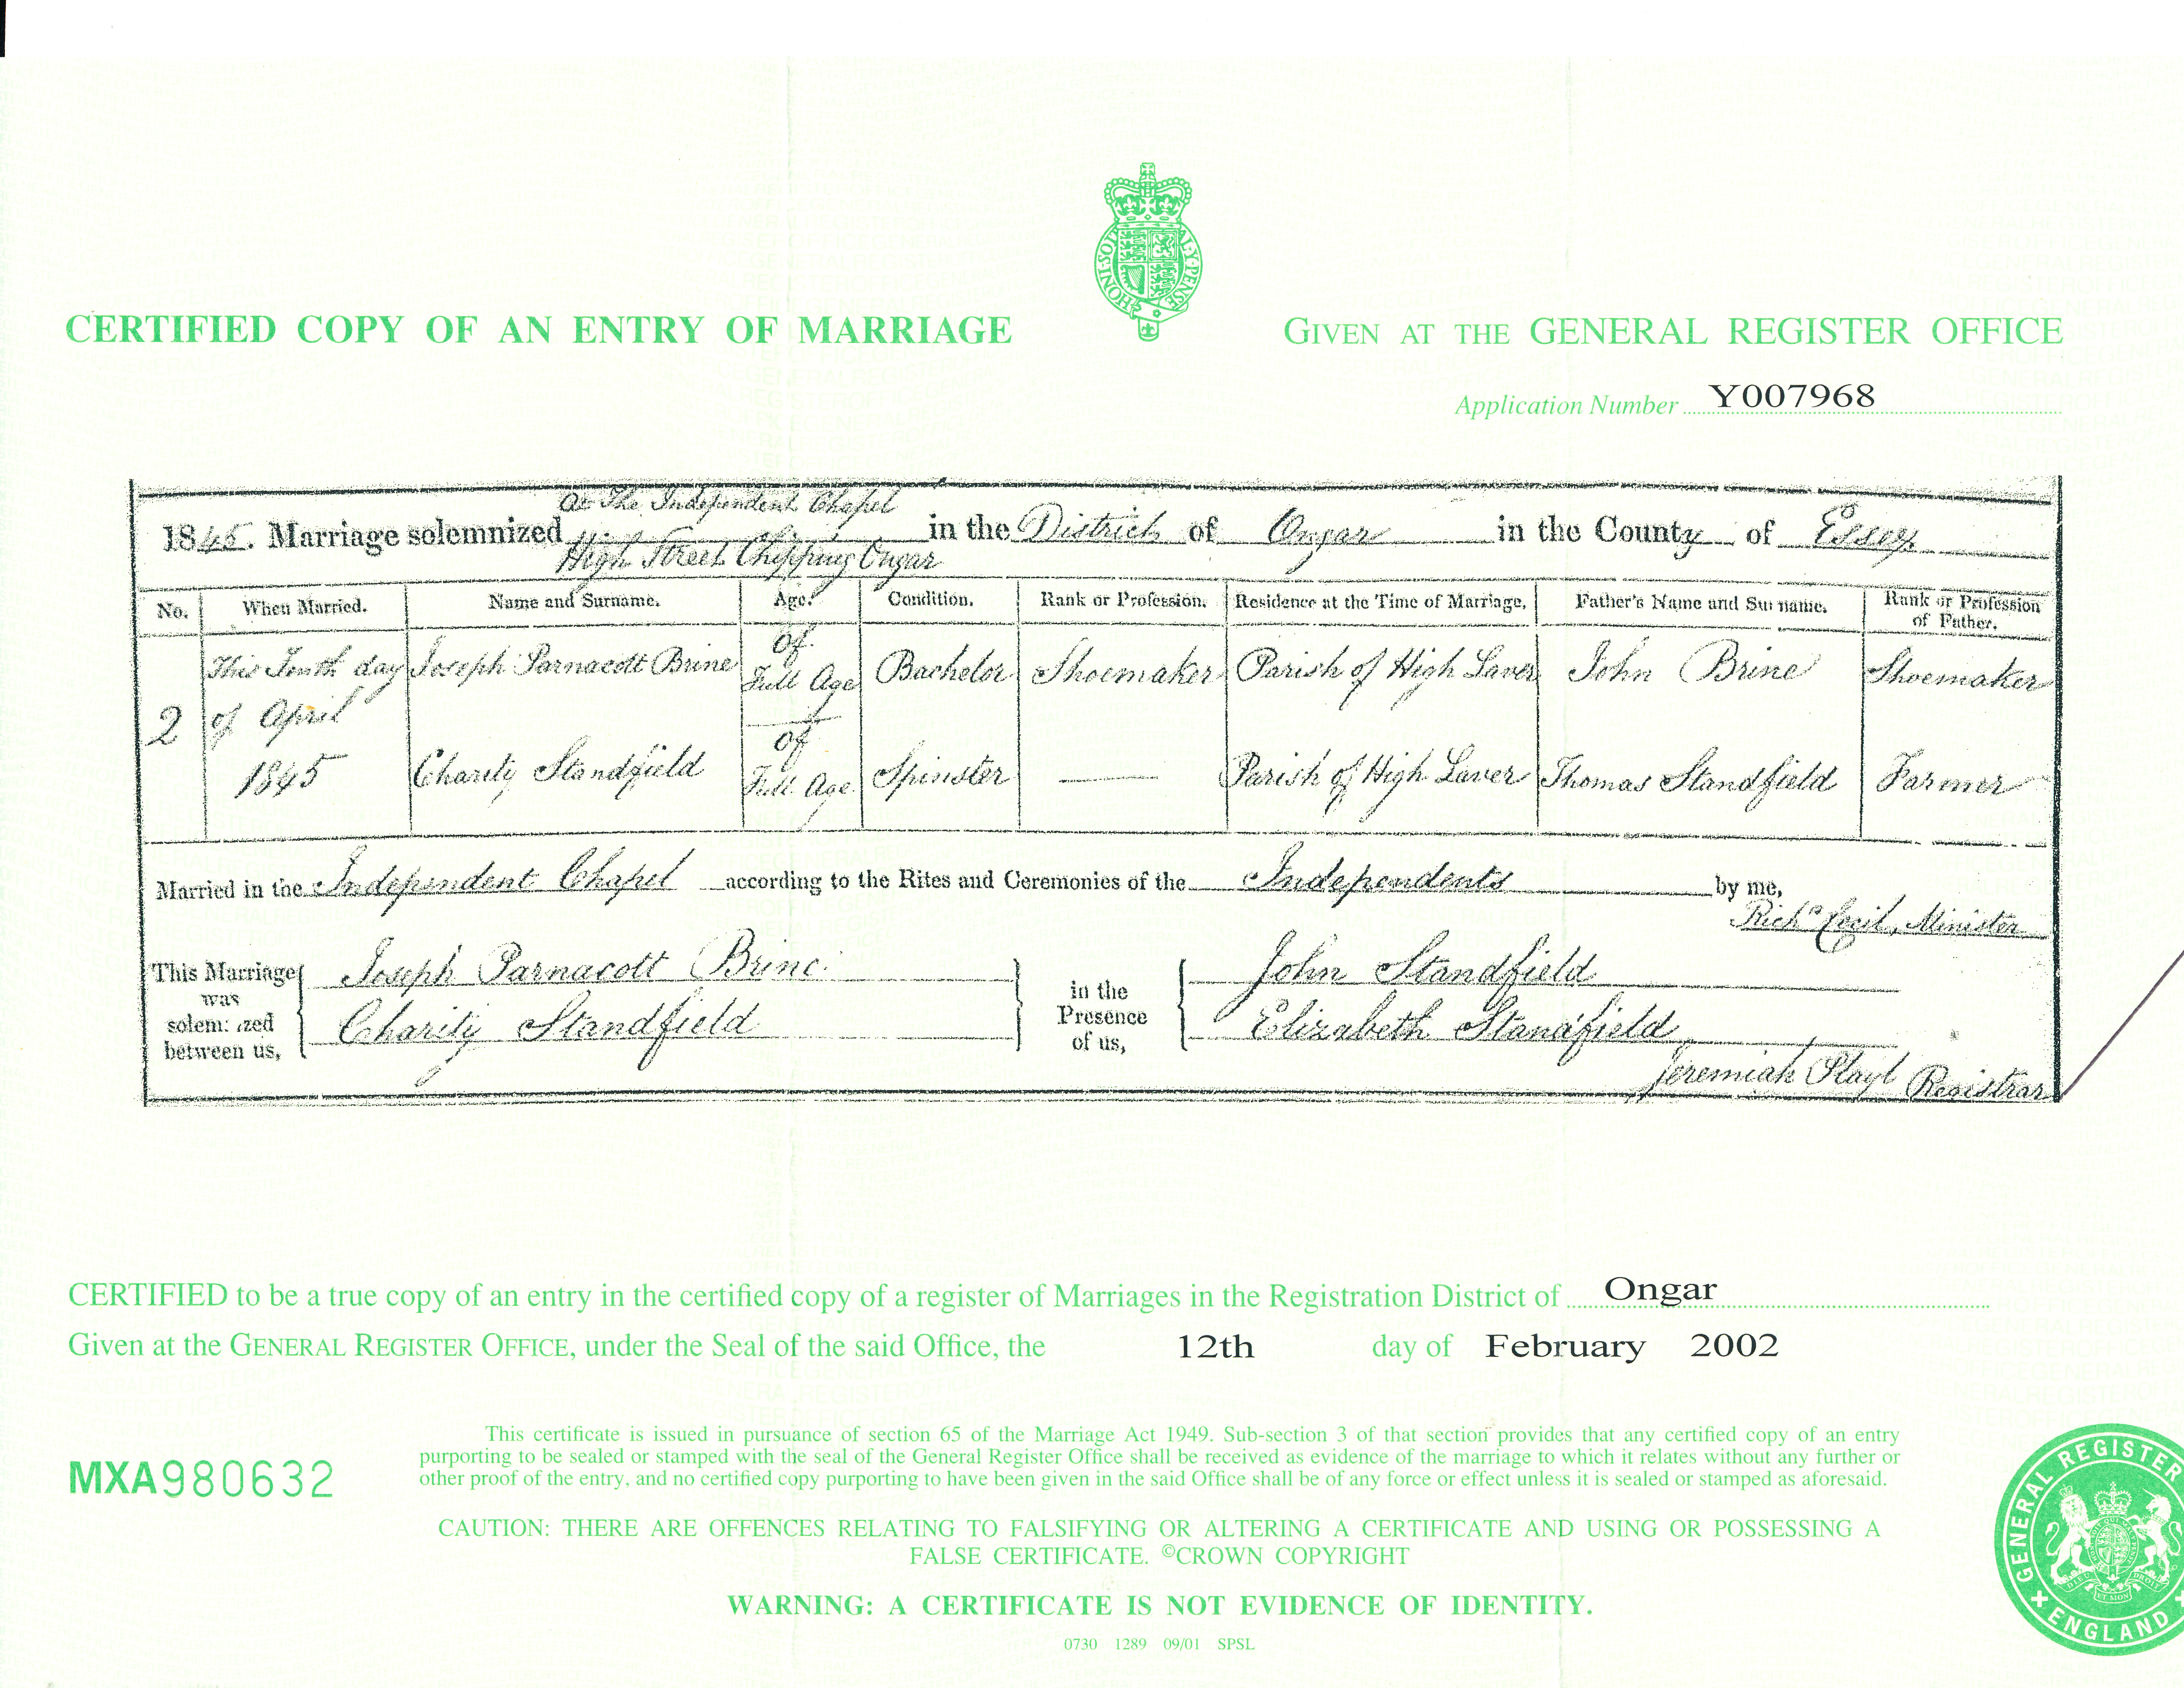 HONI·SOIT·QUI·MAL·Y·PENSE
CERTIFIED COPY OF AN ENTRY OF MARRIAGE
GIVEN AT THE GENERAL REGISTER OFFICE
Application Number Y007968
At The Independent Chapel
1845. Marriage solemnized High Street Chipping Ongar in the District of Ongar in the County of Essex
No. When Married. Name and Surname. Age. Condition. Rank or Profession. Residence at the Time of Marriage. Father's Name and Surname. Rank or Profession of Father.
2 This Tenth day of April 1845 Joseph Parnacott Brine of Full Age Bachelor Shoemaker Parish of High Laver John Brine Shoemaker
Charity Standfield of Full Age Spinster — Parish of High Laver Thomas Standfield Farmer
Married in the Independent Chapel according to the Rites and Ceremonies of the Independents by me,
Richd Cecil, Minister
This Marriage was solemnized between us, Joseph Parnacott Brine in the Presence of us, John Standfield
Charity Standfield Elizabeth Standfield
Jeremiah Registrar
CERTIFIED to be a true copy of an entry in the certified copy of a register of Marriages in the Registration District of Ongar
Given at the GENERAL REGISTER OFFICE, under the Seal of the said Office, the 12th day of February 2002
This certificate is issued in pursuance of section 65 of the Marriage Act 1949. Sub-section 3 of that section provides that any certified copy of an entry
purporting to be sealed or stamped with the seal of the General Register Office shall be received as evidence of the marriage to which it relates without any further or
other proof of the entry, and no certified copy purporting to have been given in the said Office shall be of any force or effect unless it is sealed or stamped as aforesaid.
MXA980632
CAUTION: THERE ARE OFFENCES RELATING TO FALSIFYING OR ALTERING A CERTIFICATE AND USING OR POSSESSING A
FALSE CERTIFICATE. ©CROWN COPYRIGHT
WARNING: A CERTIFICATE IS NOT EVIDENCE OF IDENTITY.
0730 1289 09/01 SPSL
GENERAL REGISTER
ENGLAND